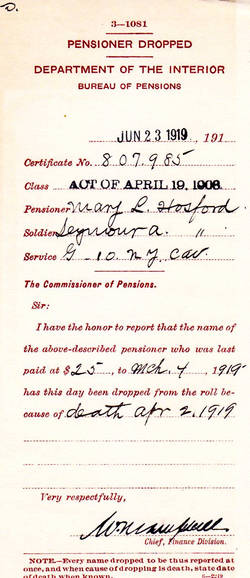 D.
3—1081
PENSIONER DROPPED
DEPARTMENT OF THE INTERIOR
BUREAU OF PENSIONS
JUN 23 1919, 191
Certificate No. 807.985
Class ACT OF APRIL 19, 1908
Pensioner Mary L. Hosford
Soldier Seymour A. "
Service G - 10. N.Y. Cav
The Commissioner of Pensions.
Sir:
I have the honor to report that the name of
the above-described pensioner who was last
paid at $25, to Mch. 4, 1919
has this day been dropped from the roll be-
cause of death Apr 2, 1919
Very respectfully,
Chief, Finance Division.
NOTE.—Every name dropped to be thus reported at
once, and when cause of dropping is death, state date
of death when known.